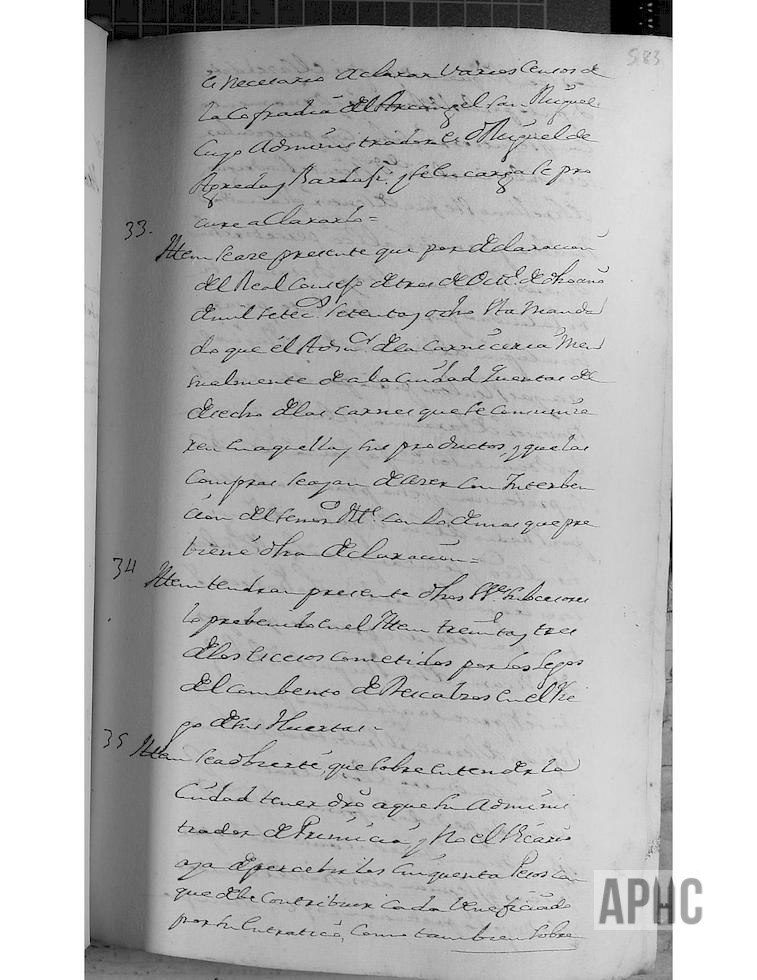 583
es necesario aclarar varios censos de
la Cofradia del Arcangel San Miguel
cuyo Administrador es dn Miguel de
Agreda y Bardaji, y se encarga se pro
cure aclararlo =
33. Ittem se ace presente que por declaracion
del Real Consejo de tres de Octe. de dho año
de mil setecs. setenta y ocho sta manda
do que el Admor. de la Carniceria men
sualmente de a la Ciudad quentas de
derecho de las carnes que se consumie
ren en aquella, y sus productos, y que las
compras se ayan de acer con Interben
cion del señor con lo demas que pre
biene dha declaracion =
34 Ittem tendran presente dhos SSes. subcesores
lo prebenido en el Ittem treinta y tres
de los excesos cometidos por los Legos
del combento de Descalzos en el Rie
go de sus Huertas =
35 Ittem se adbierte, que sobre entender la
Ciudad tener dro a que su Adminis
trador de Primicia, y no el Vicario
aya de percebir los cinquenta Pesos
que debe contribuir cada Veneficiado
por su entratica, como tambien sobre
APHC